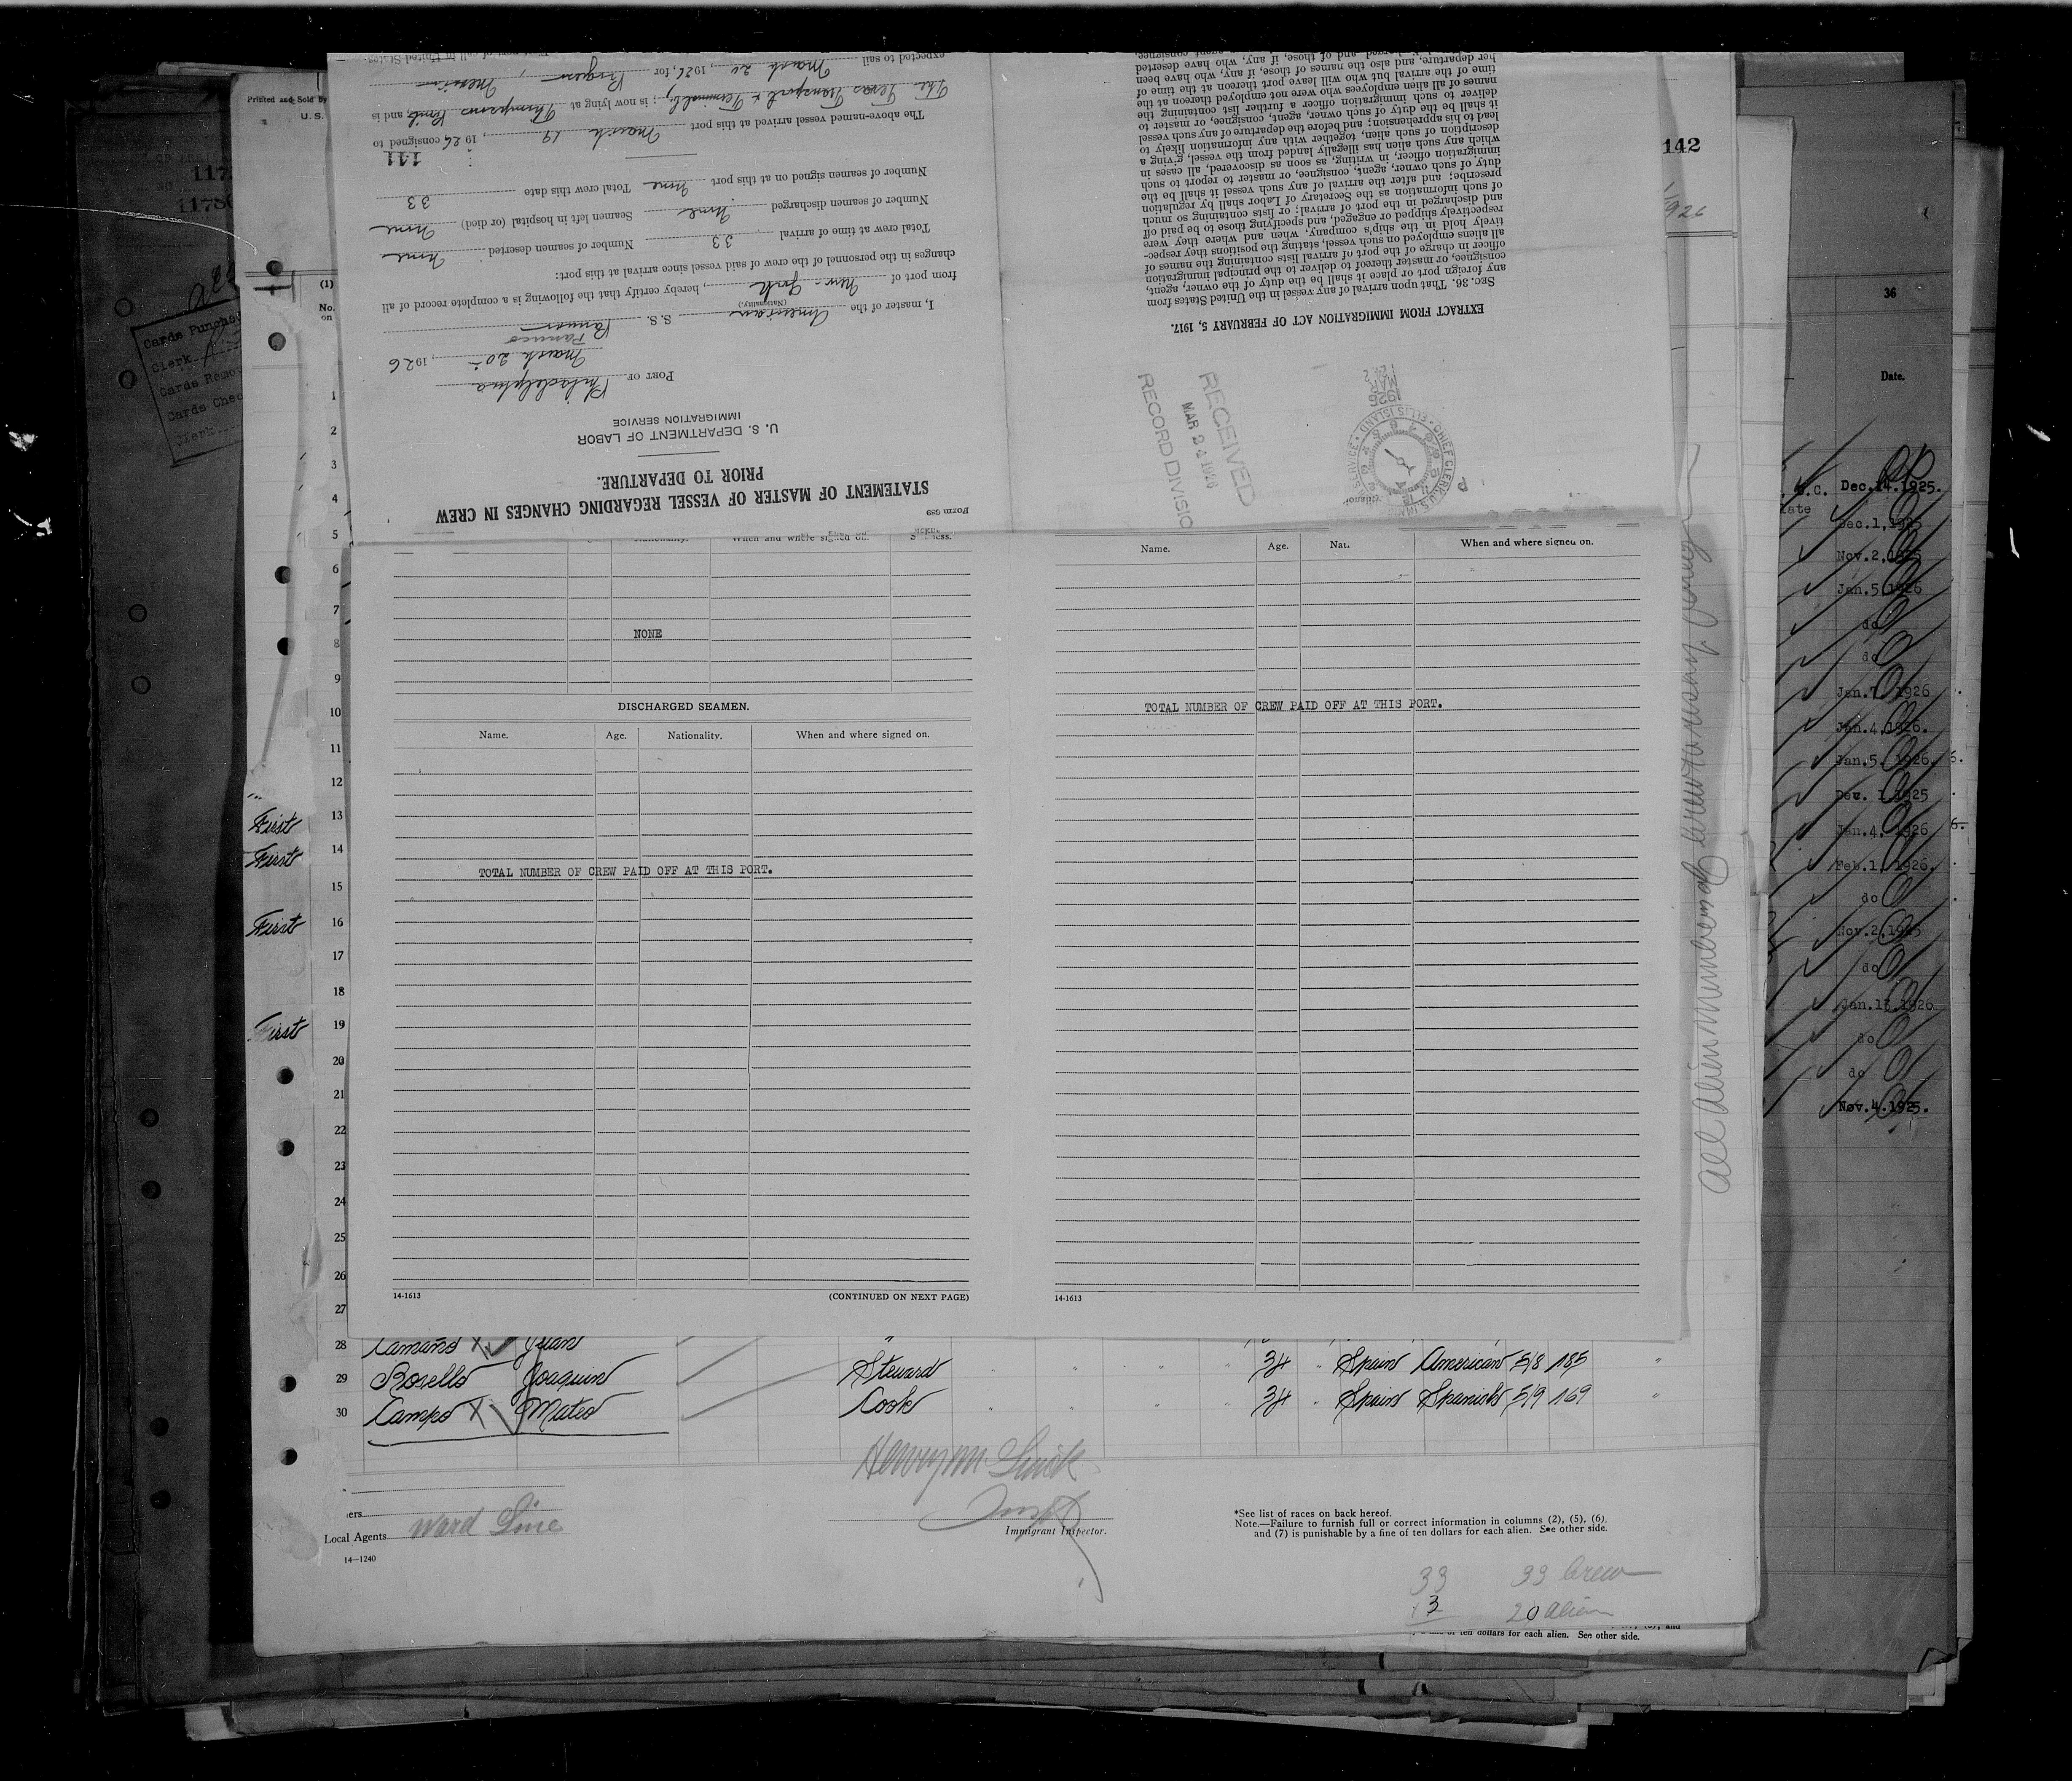 142
Form 689
STATEMENT OF MASTER OF VESSEL REGARDING CHANGES IN CREW
PRIOR TO DEPARTURE.
U. S. DEPARTMENT OF LABOR
IMMIGRATION SERVICE
PORT OF Philadelphia
March 20, 1926
Panuco
I, master of the American S. S. Panuco
(Nationality)
from port of New-York, hereby certify that the following is a complete record of all
changes in the personnel of the crew of said vessel since arrival at this port:
Total crew at time of arrival 33 Number of seamen deserted None
Number of seamen discharged None Seamen left in hospital (or died) None
Number of seamen signed on at this port None Total crew this date 33
141
The above-named vessel arrived at this port March 19, 1926 consigned to
The Texas Transport & Terminal; is now lying at Thompsons Point, and is
expected to sail March 20, 1926, for Progreso, Mexico
EXTRACT FROM IMMIGRATION ACT OF FEBRUARY 5, 1917.
SEC. 36. That upon arrival of any vessel in the United States from
any foreign port or place it shall be the duty of the owner, agent,
consignee, or master thereof to deliver to the principal immigration
officer in charge of the port of arrival lists containing the names of
all aliens employed on such vessel, stating the positions they respec-
tively hold in the ship's company, when and where they were
respectively shipped or engaged, and specifying those to be paid off
and discharged in the port of arrival; or lists containing so much
of such information as the Secretary of Labor shall by regulation
prescribe; and after the arrival of any such vessel it shall be the
duty of such owner, agent, consignee, or master to report to such
immigration officer, in writing, as soon as discovered, all cases in
which any such alien has illegally landed from the vessel, giving a
description of such alien, together with any information likely to
lead to his apprehension; and before the departure of any such vessel
it shall be the duty of such owner, agent, consignee, or master to
deliver to such immigration officer a further list containing the
names of all alien employees who were not employed thereon at the
time of the arrival but who will leave port thereon at the time of
her departure, and also the names of those, if any, who have been
RECEIVED
MAR 24 1926
RECORD DIVISIO
Nationality. When and where signed on.
NONE
DISCHARGED SEAMEN.
Name. Age. Nationality. When and where signed on.
TOTAL NUMBER OF CREW PAID OFF AT THIS PORT.
14-1613
(CONTINUED ON NEXT PAGE)
Name. Age. Nat. When and where signed on.
TOTAL NUMBER OF CREW PAID OFF AT THIS PORT.
14-1613
Printed and Sold by
U. S.
(1)
No.
on
1
2
3
4
5
6
7
8
9
10
11
12
First 13
First 14
15
First 16
17
18
First 19
20
21
22
23
24
25
26
27
28 Camaño X Juan "
29 Rosello Joaquin Steward 34 " Spain American 5/8 185 "
30 Campo X Mateo Cook 34 " Spain Spanish 5/9 169 "
Immigrant Inspector.
ers
Local Agents Ward Line
14—1240
*See list of races on back hereof.
NOTE.—Failure to furnish full or correct information in columns (2), (5), (6),
and (7) is punishable by a fine of ten dollars for each alien. See other side.
33 33 Crew
13 20 Alien
ten dollars for each alien. See other side.
Cards Punched
Clerk
Cards Remo
Cards Chec
Clerk
36
Date.
Dec.14.1925.
Dec.1,1925
Nov.2,1925
Jan.5,1926
do
do
Jan.7, 1926
Jan.4,1926.
Jan.5, 1926.
Dec. 1,1925
Jan.4, 1926
Feb.1,1926.
do
Nov.2,1925
do
Jan.13,1926
do
do
Nov.4.1925.